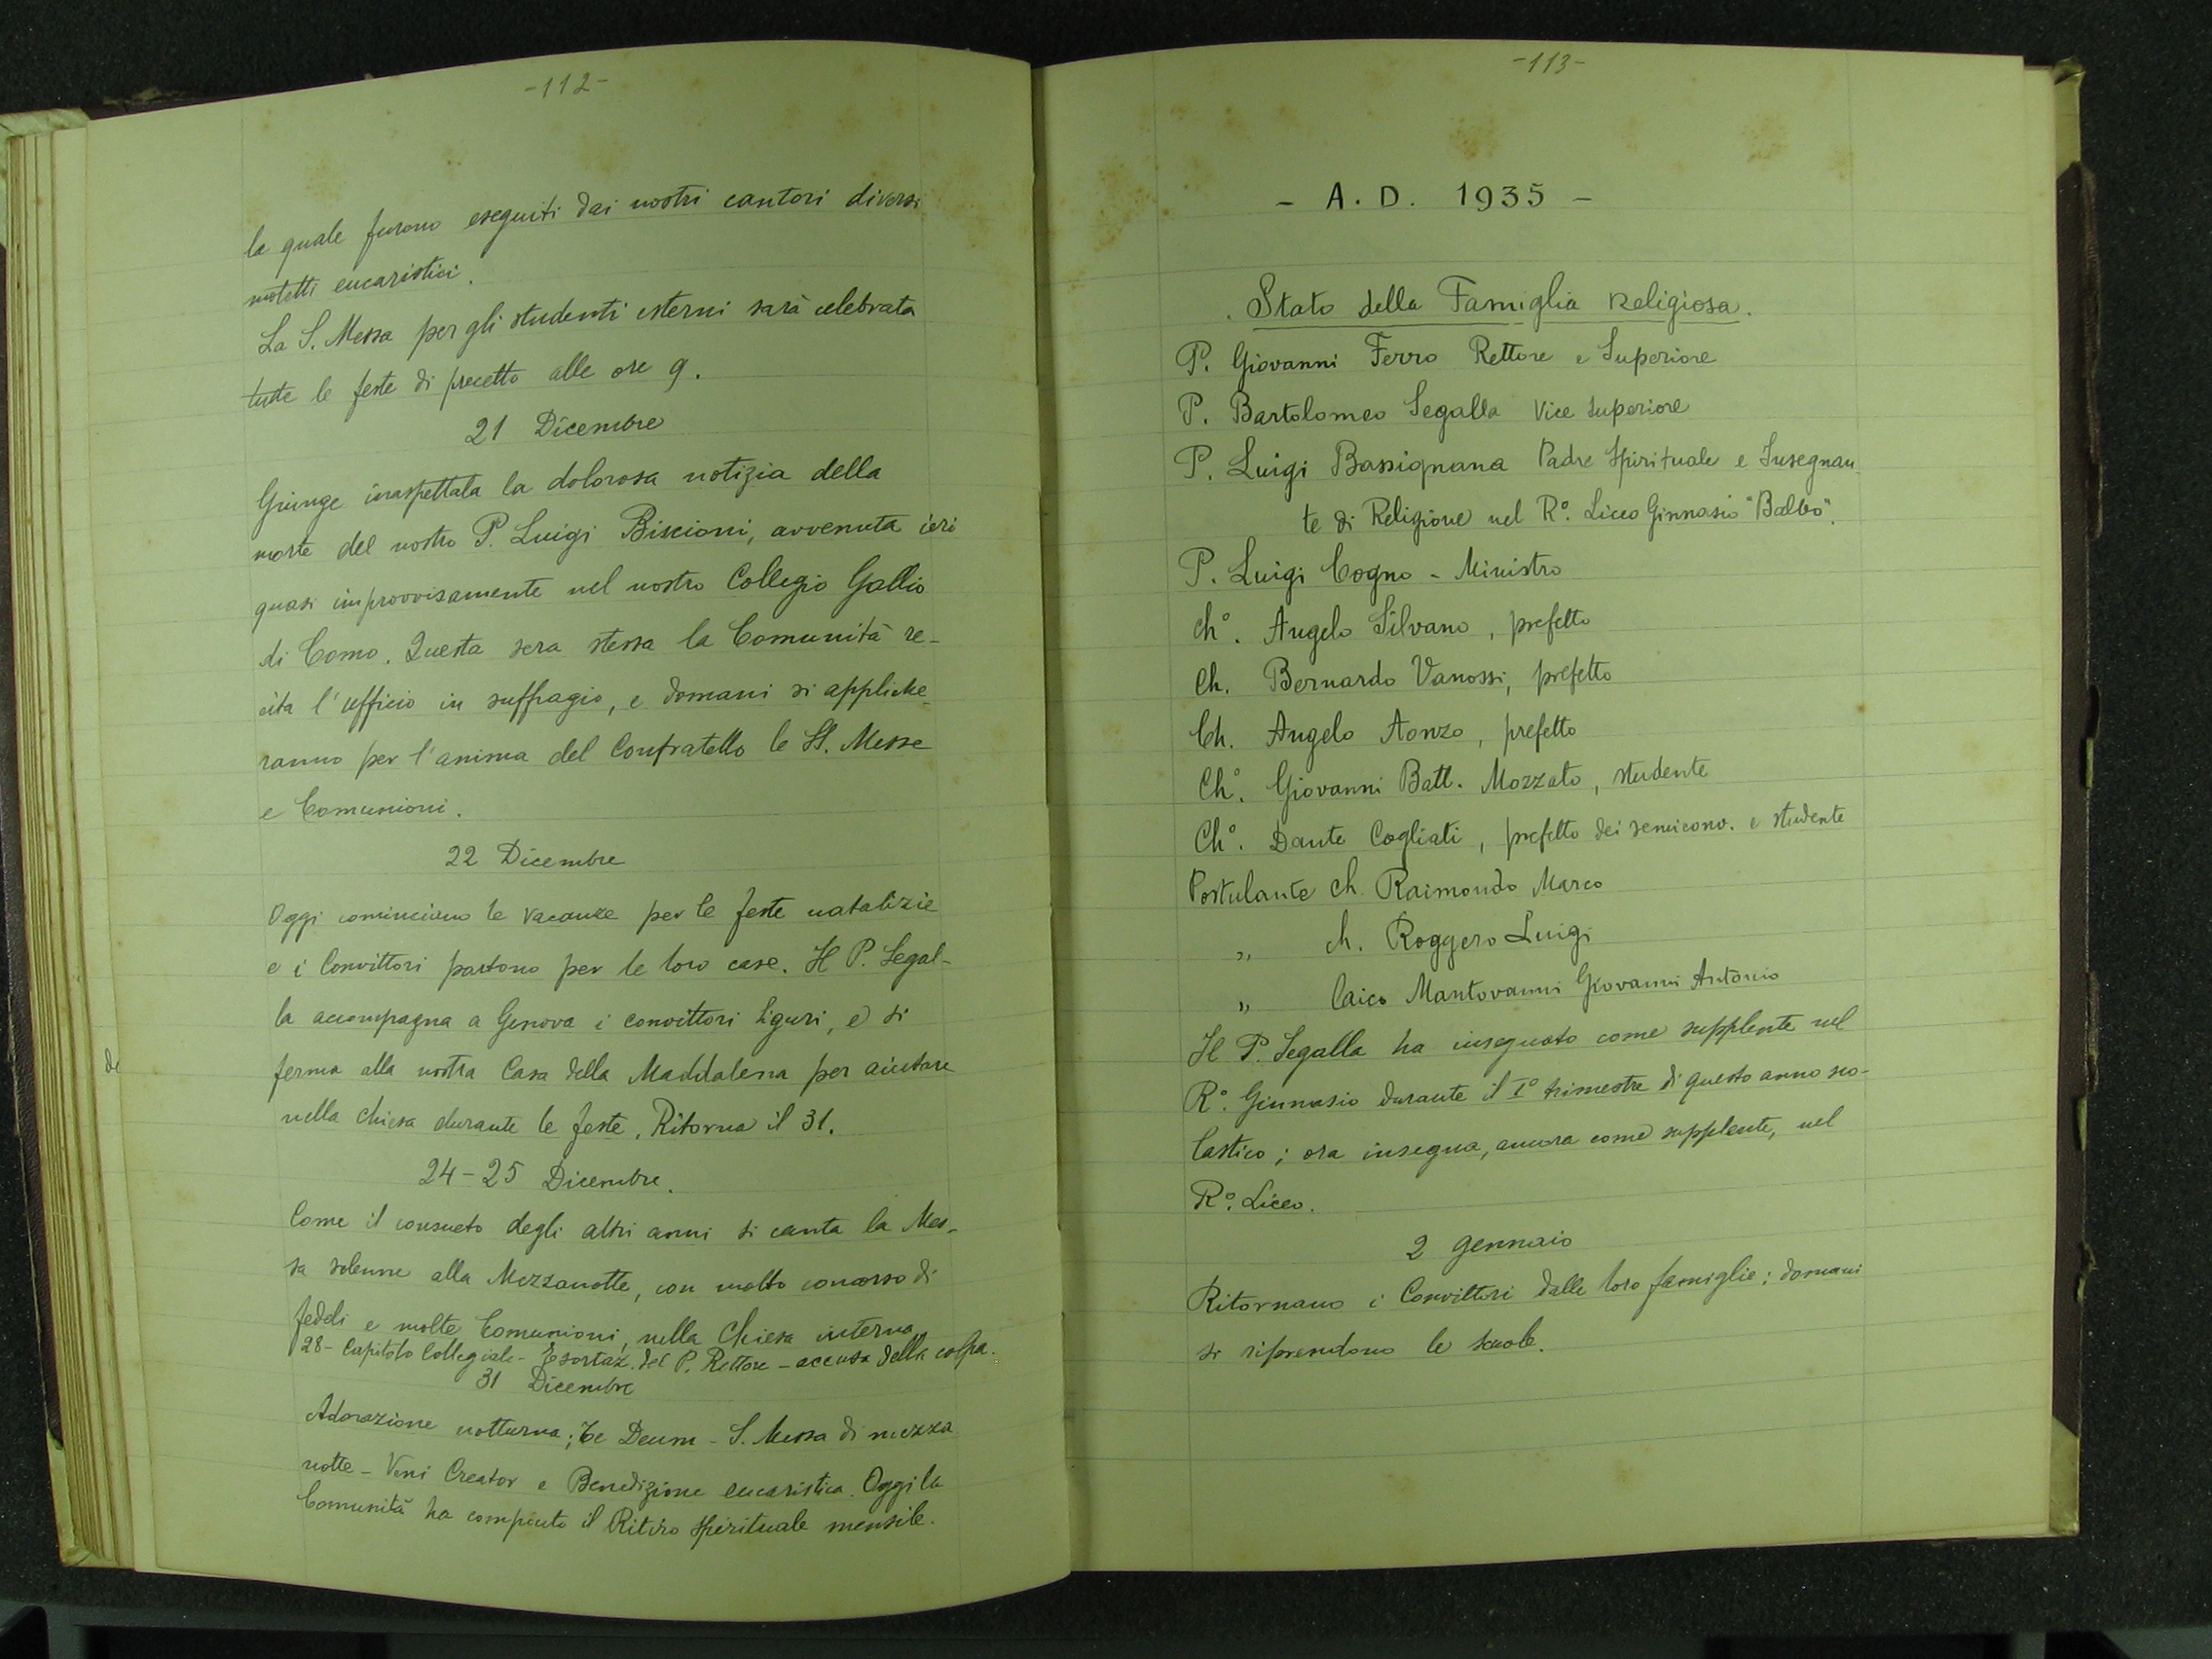 -112-
la quale furono eseguiti dai nostri cantori diversi
motetti eucaristici.
La S. Messa per gli studenti esterni sarà celebrata
tutte le feste di precetto alle ore 9.
21 Dicembre
Giunge inaspettata la dolorosa notizia della
morte del nostro P. Luigi Biscioni, avvenuta ieri
quasi improvvisamente nel nostro Collegio Gallio
di Como. Questa sera stessa la Comunità re-
cita l'ufficio in suffragio, e domani si appliche_
ranno per l'anima del Confratello le SS. Messe
e Comunioni.
22 Dicembre
Oggi cominciano le vacanze per le feste natalizie
e i Convittori partono per le loro case. Il P. Segal-
la accompagna a Genova i convittori liguri, e si
ferma alla nostra Casa della Maddalena per aiutare
nella chiesa durante le feste. Ritorna il 31.
24-25 Dicembre.
Come il consueto degli altri anni si canta la Mes-
sa solenne alla Mezzanotte, con molto concorso di
fedeli e molte Comunioni, nella Chiesa interna.
28- Capitolo Collegiale- Esortaz. del P. Rettore - accusa della colpa.
31 Dicembre
Adorazione notturna; Te Deum - S. Messa di mezza
notte - Veni Creator e Benedizione eucaristica. Oggi la
Comunità ha compiuto il Ritiro spirituale mensile.
de
-113-
- A. D. 1935 -
Stato della Famiglia Religiosa.
P. Giovanni Ferro Rettore e Superiore
P. Bartolomeo Segalla Vice Superiore
P. Luigi Bassignana Padre Spirituale e Insegnan_
te di Religione nel R°. Liceo Ginnasio "Balbo".
P. Luigi Cogno - Ministro
Ch°. Angelo Silvano, prefetto
Ch. Bernardo Vanossi, prefetto
Ch. Angelo Aonzo, prefetto
Ch°. Giovanni Batt. Mozzato, studente
Ch°. Dante Cogliati, prefetto dei semiconv. e studente
Postulante ch. Raimondo Marco
„ ch. Roggero Luigi
„ laico Mantovanni Giovanni Antonio
Il P. Segalla ha insegnato come supplente nel
R°. Ginnasio durante il I° trimestre di questo anno sco-
lastico; ora insegna, ancora come supplente, nel
R°. Liceo.
2 gennaio
Ritornano i Convittori dalle loro famiglie; domani
si riprendono le scuole.